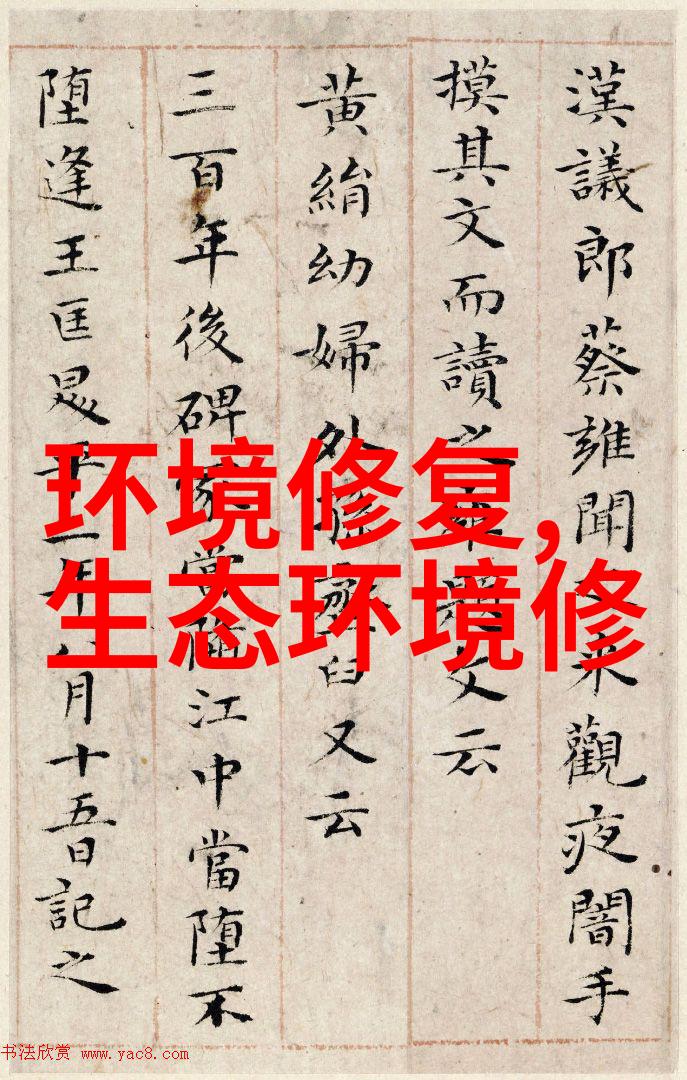 漢議郎蔡雍聞来觀夜闇手
摸其文而讀之文云
黃絹幼婦外臼又云
三百年後碑冢當墮江中當堕不
堕逢王匡年月十五日記之
环境修复,
生态环境修
书法欣赏 www.yac8.com